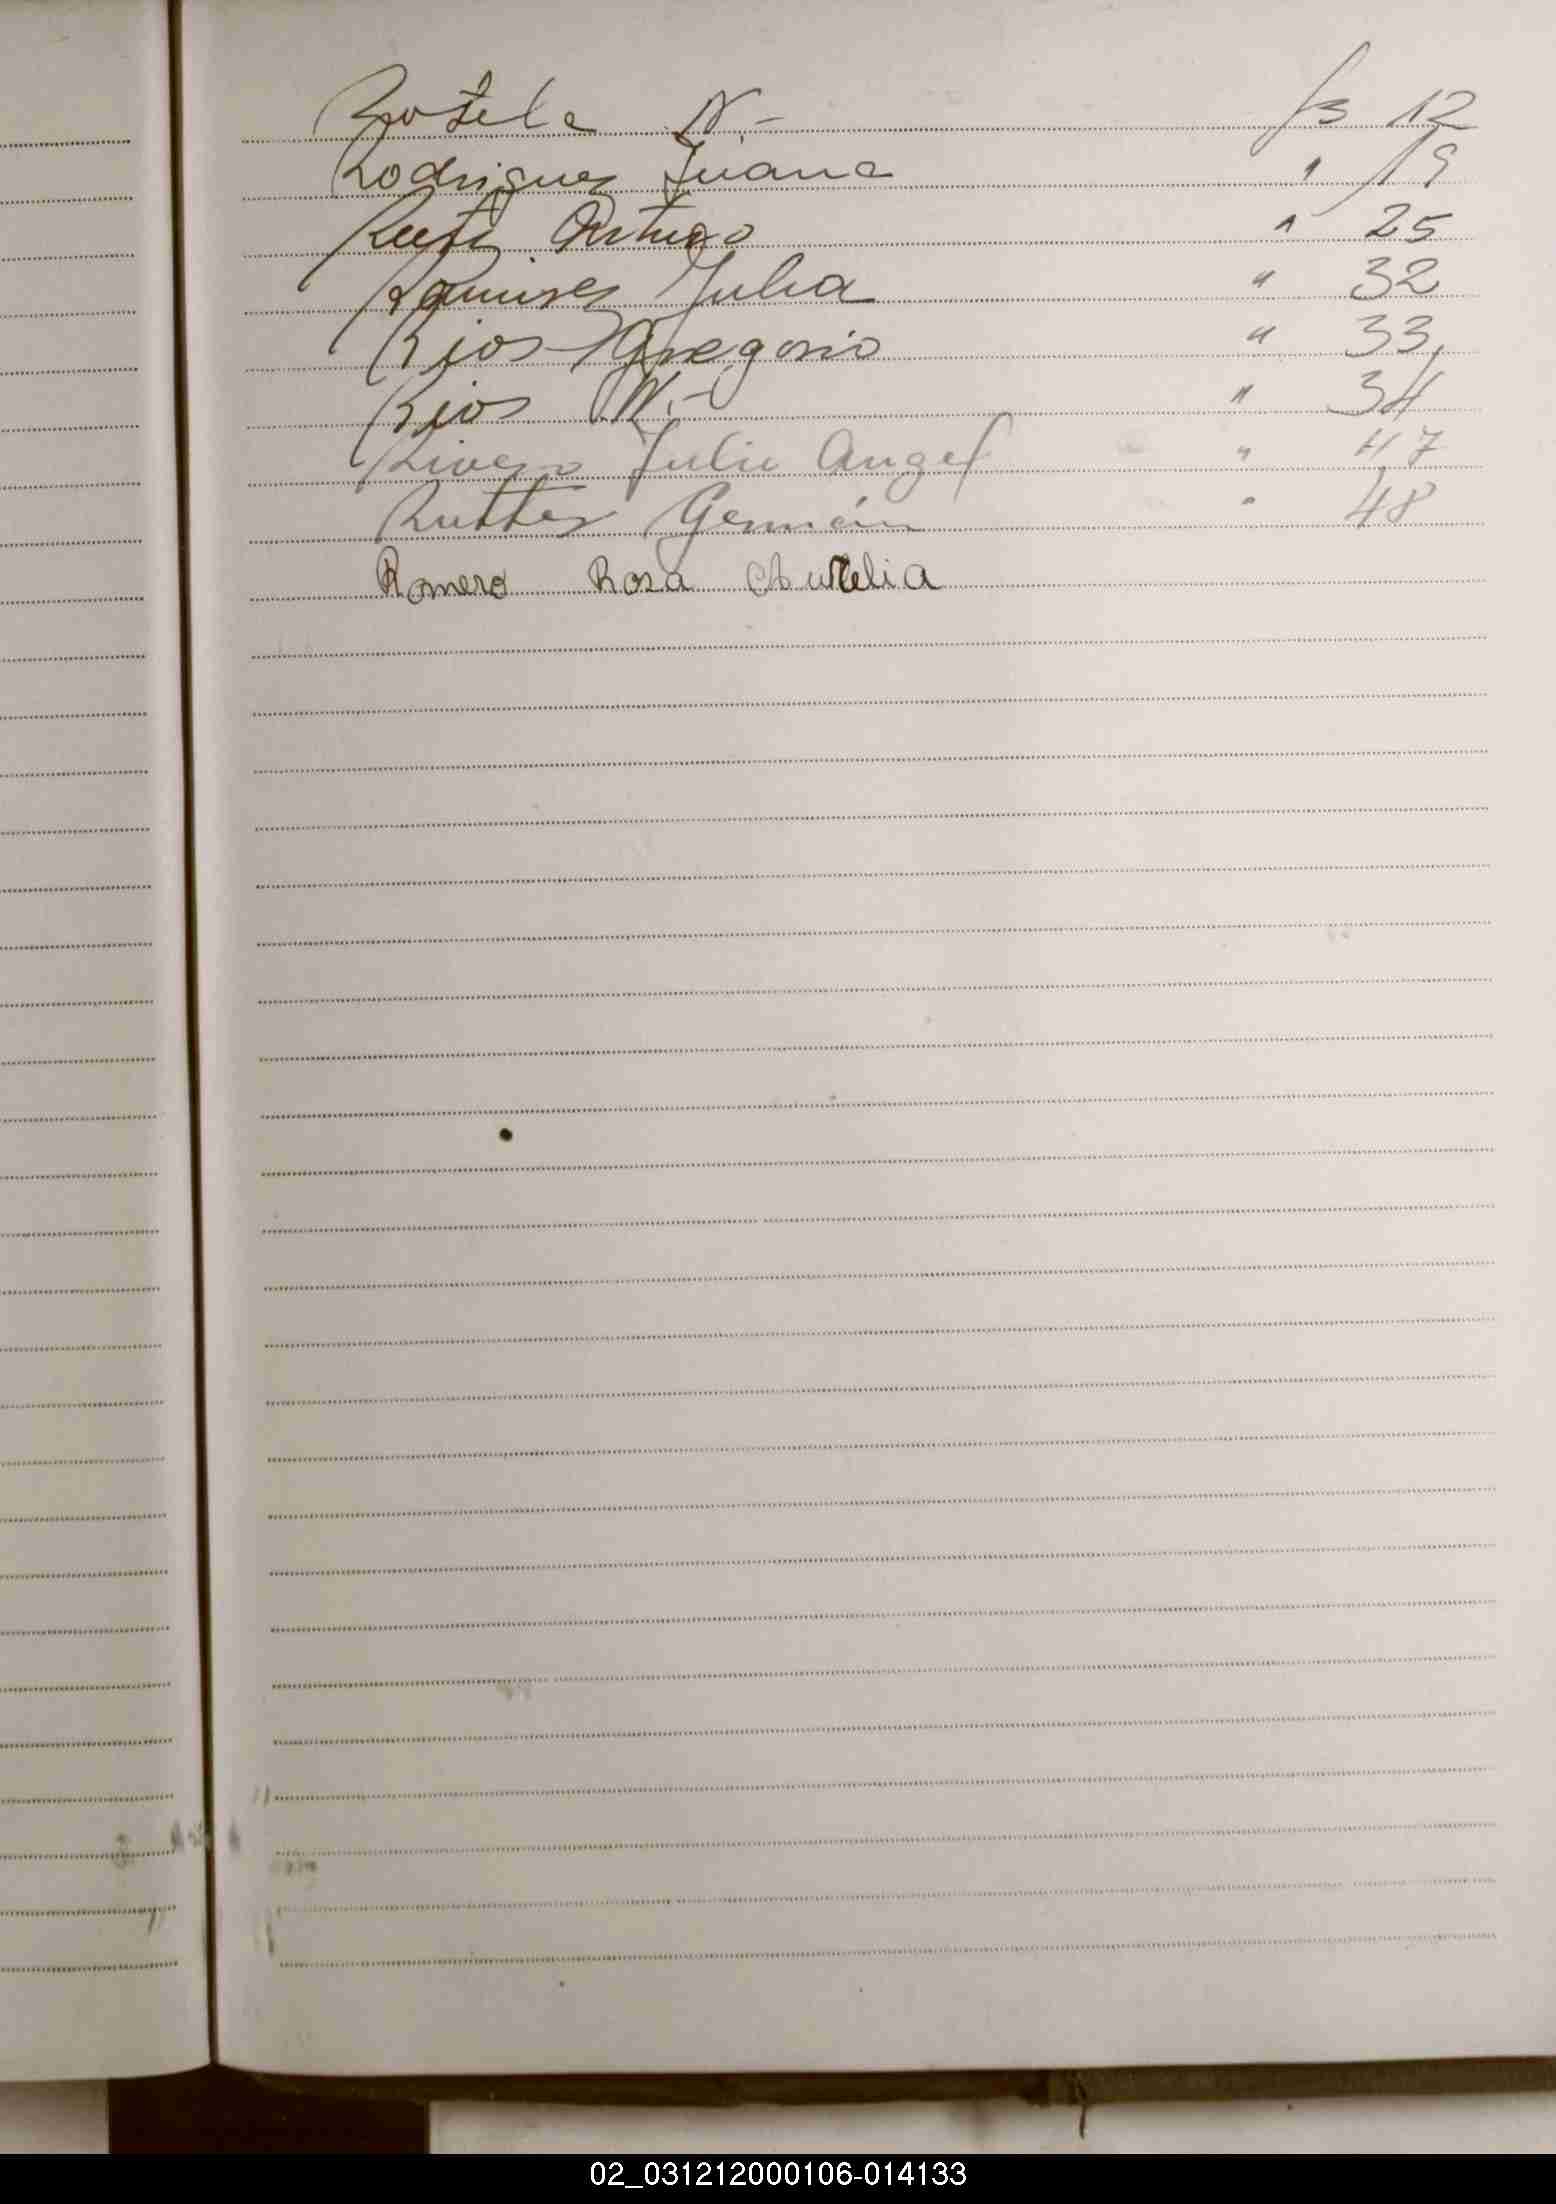 Rotela N.- fs 12
Rodriguez Juana " 19
Ruti Arturo " 25
Ramirez Julia " 32
Rios Gregorio " 33
Rios N.- " 34
Rivero Julio Angel " 47
Rutter Germán " 48
Romero Rosa Aurelia
02_031212000106-014133